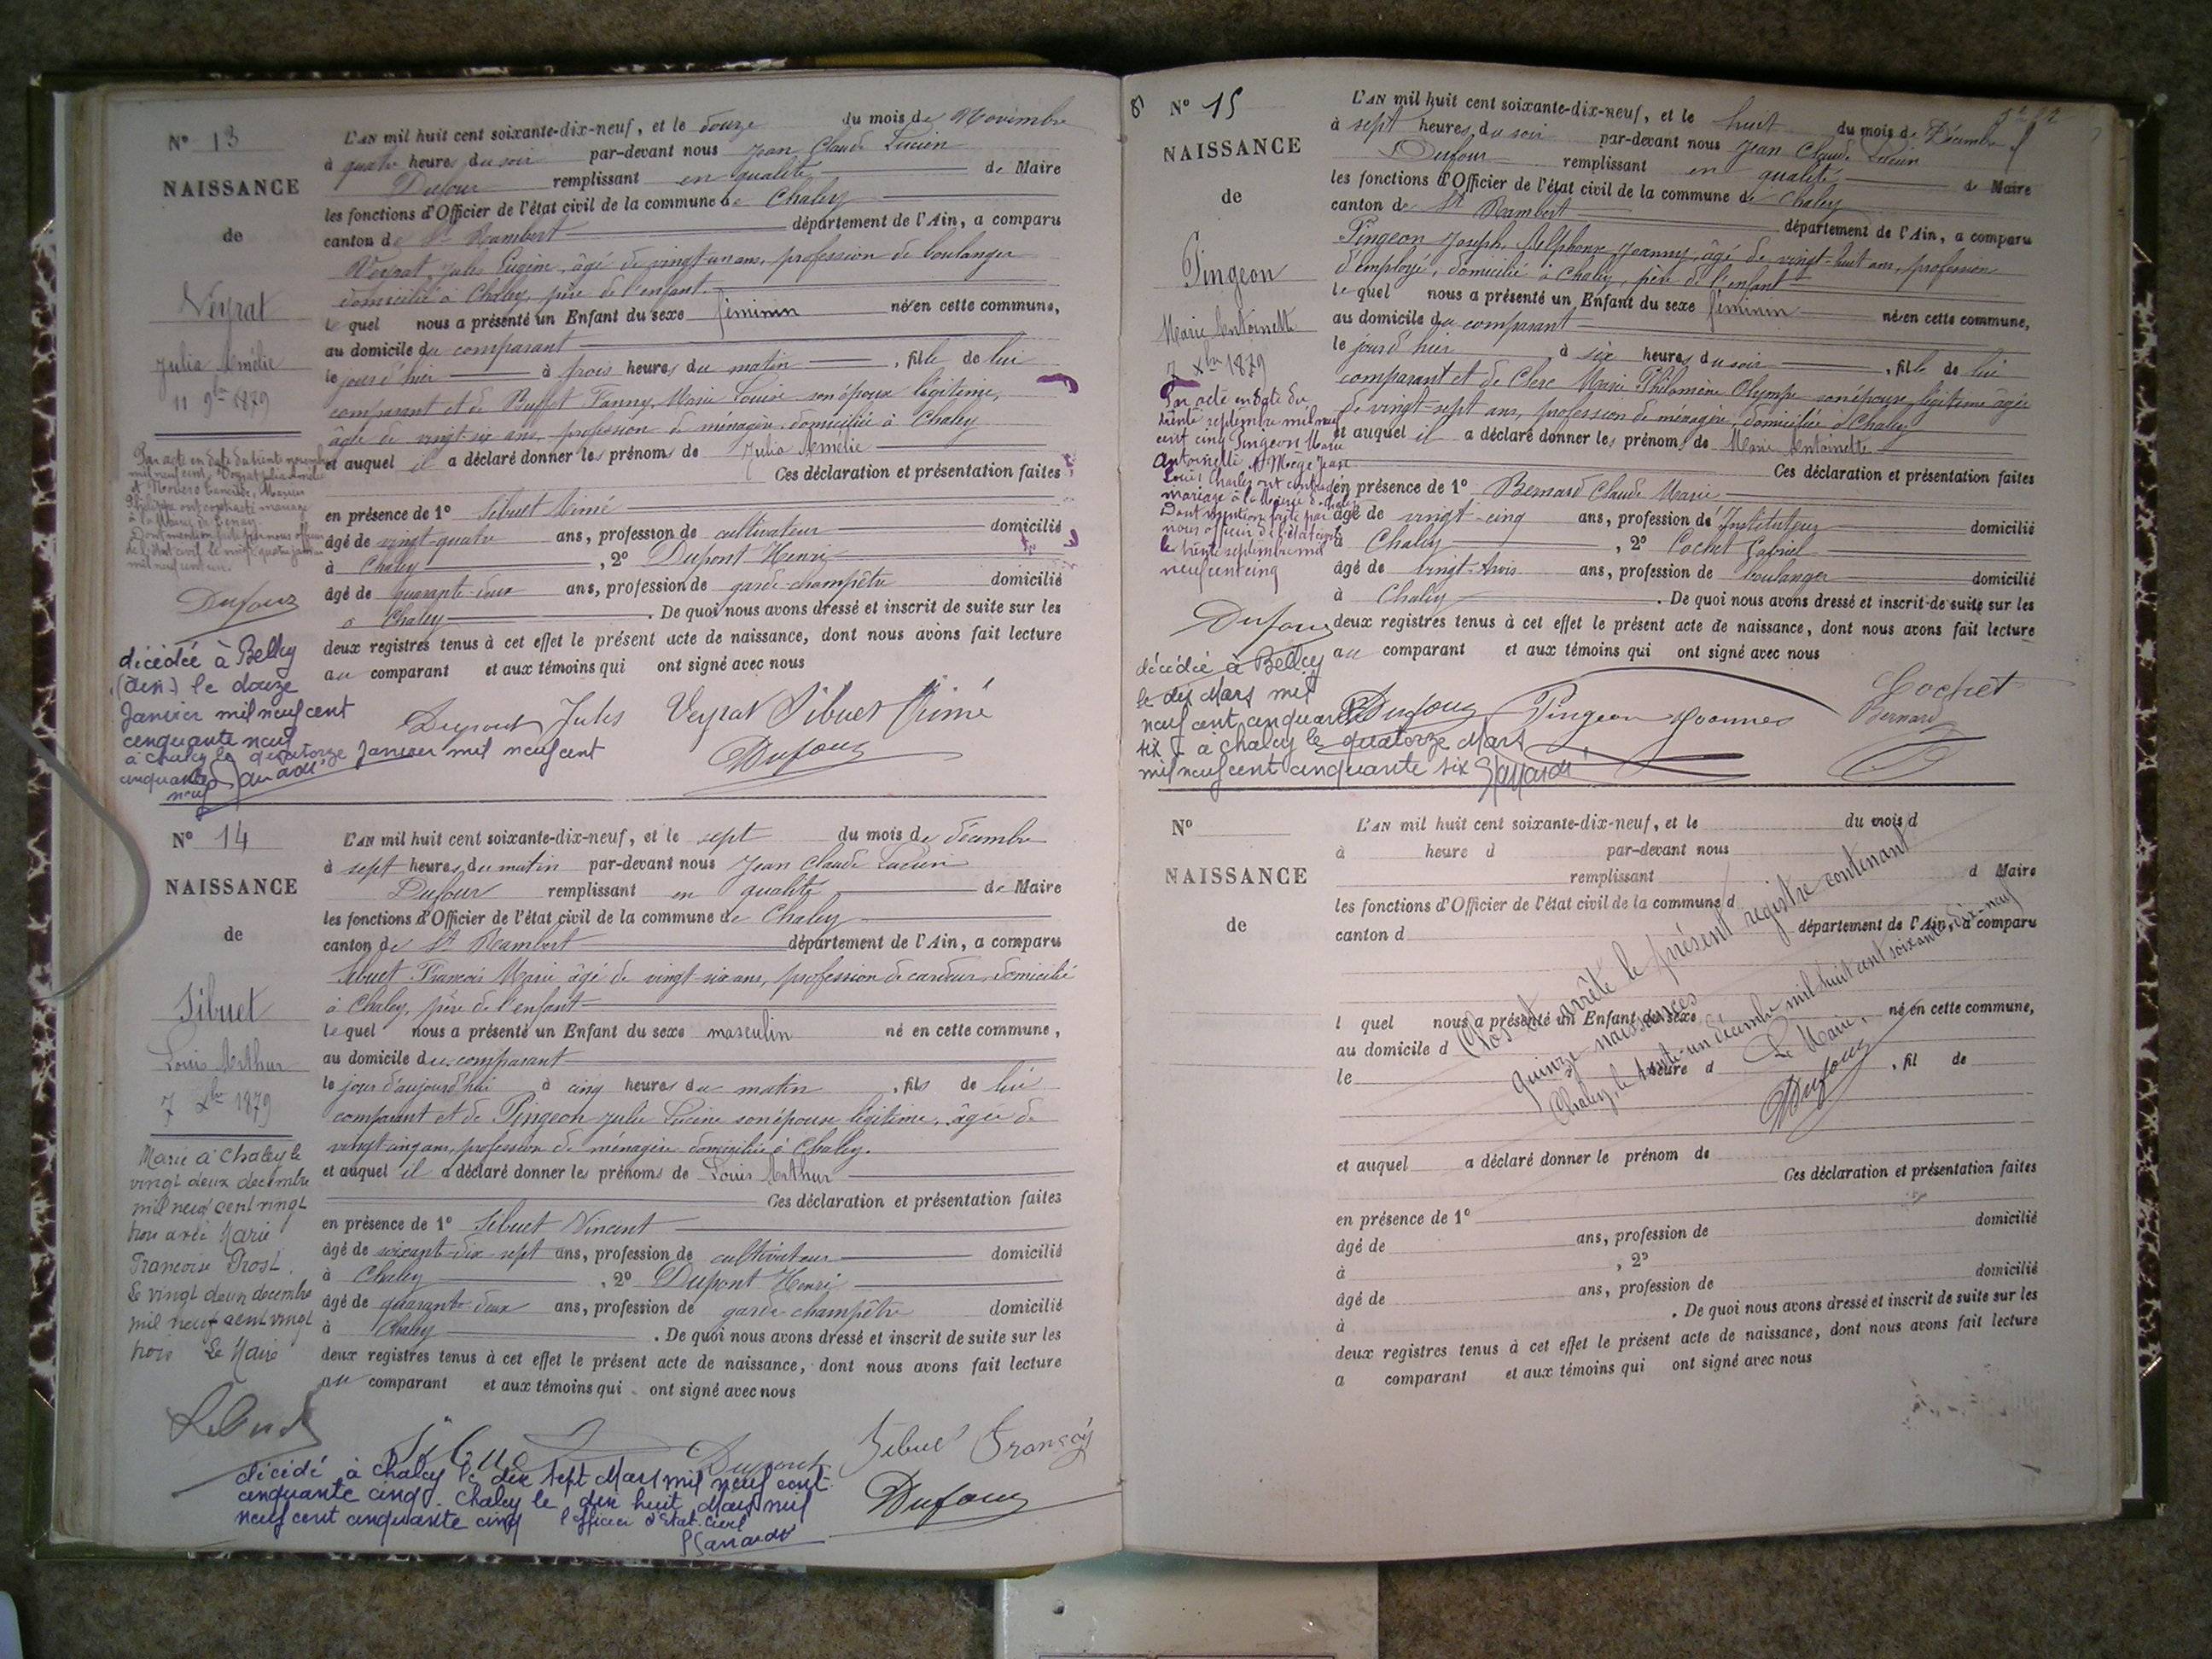 N° 13
NAISSANCE
de
Veyrat
Julia Amélie
11 9bre 1879
Par acte en date du trente novembre
mil neuf cent, Veyrat Julia Amélie
et
Philippe ont contracté mariage
à la Mairie de Tenay.
Dont mention faite par nous officier
de l'état civil le
mil neuf cent un.
Dufour
décédée à Belley
(Ain) le douze
Janvier mil neuf cent
cinquante neuf
à Chaley le quatorze Janvier mil neuf cent
cinquante
neuf
L'AN mil huit cent soixante-dix-neuf, et le douze du mois de Novembre
à quatre heures du soir par-devant nous Jean Claude Lucien
Dufour remplissant en qualité de Maire
les fonctions d'Officier de l'état civil de la commune de Chaley
canton de St Rambert département de l'Ain, a comparu
Veyrat, Jules Eugène, âgé de vingt un ans, profession de boulanger
domicilié à Chaley, père de l'enfant.
le quel nous a présenté un Enfant du sexe féminin né en cette commune,
au domicile du comparant
le jour d'hier à trois heures du matin, fille de lui
comparant et de Buffet Fanny, Marie Louise son épouse légitime,
âgée de vingt six ans, profession de ménagère domiciliée à Chaley
et auquel il a déclaré donner les prénoms de Julia Amélie
Ces déclaration et présentation faites
en présence de 1° Sibuet Aimé
âgé de vingt-quatre ans, profession de cultivateur domicilié
à Chaley, 2° Dupont Henri
âgé de quarante-deux ans, profession de garde-champêtre domicilié
à Chaley. De quoi nous avons dressé et inscrit de suite sur les
deux registres tenus à cet effet le présent acte de naissance, dont nous avons fait lecture
au comparant et aux témoins qui ont signé avec nous
Dupont Jules Veyrat Sibuet Aimé
Dufour
N° 14
NAISSANCE
de
Sibuet
Louis Arthur
7 Xbre 1879
Marié à Chaley le
vingt deux décembre
mil neuf cent vingt
trois avec Marie
Françoise Prost.
Le vingt deux décembre
mil neuf cent vingt
trois Le Maire
L'AN mil huit cent soixante-dix-neuf, et le sept du mois de décembre
à sept heures du matin par-devant nous Jean Claude Lucien
Dufour remplissant en qualité de Maire
les fonctions d'Officier de l'état civil de la commune de Chaley
canton de St Rambert département de l'Ain, a comparu
Sibuet François Marie âgé de vingt-six ans, profession de cardeur, domicilié
à Chaley, père de l'enfant
le quel nous a présenté un Enfant du sexe masculin né en cette commune,
au domicile du comparant
le jour d'aujourd'hui à cinq heures du matin, fils de lui
comparant et de Pingeon Julie Lucine son épouse légitime, âgée de
vingt-cinq ans, profession de ménagère domiciliée à Chaley.
et auquel il a déclaré donner les prénoms de Louis Arthur
Ces déclaration et présentation faites
en présence de 1° Sibuet Vincent
âgé de soixante-dix-sept ans, profession de cultivateur domicilié
à Chaley, 2° Dupont Henri
âgé de quarante-deux ans, profession de garde-champêtre domicilié
à Chaley. De quoi nous avons dressé et inscrit de suite sur les
deux registres tenus à cet effet le présent acte de naissance, dont nous avons fait lecture
au comparant et aux témoins qui ont signé avec nous
Sibuet Dupont Sibuet François
Dufour
décédé à Chaley le dix sept Mars mil neuf cent
cinquante cinq. Chaley le dix huit Mars mil
neuf cent cinquante cinq l'officier d'Etat-Civil
N° 15
NAISSANCE
de
Pingeon
Marie Antoinette
7 Xbre 1879
Par acte en date du
trente septembre mil neuf
cent cinq Pingeon Marie
Antoinette & Moège Jean
Louis Charles ont contracté
mariage à la Mairie de Chaley
Dont mention faite par
nous officier de l'état civil
le trente septembre mil
neuf cent cinq
Dufour
décédée à Belley
le dix Mars mil
neuf cent cinquante
six à Chaley le quatorze Mars
mil neuf cent cinquante six
L'AN mil huit cent soixante-dix-neuf, et le huit du mois de Décembre
à sept heures du soir par-devant nous Jean Claude Lucien
Dufour remplissant en qualité de Maire
les fonctions d'Officier de l'état civil de la commune de Chaley
canton de St Rambert département de l'Ain, a comparu
Pingeon Joseph, Alphonse Joanny, âgé de vingt-huit ans, profession
d'employé, domicilié à Chaley, père de l'enfant
le quel nous a présenté un Enfant du sexe féminin né en cette commune,
au domicile du comparant
le jour d'hier à six heures du soir, fille de lui
comparant et de Clerc Marie Philomène Olympe son épouse légitime âgée
de vingt-sept ans, profession de ménagère, domiciliée à Chaley
et auquel il a déclaré donner les prénoms de Marie Antoinette
Ces déclaration et présentation faites
en présence de 1° Bernard Claude Marie
âgé de vingt-cinq ans, profession d'Instituteur domicilié
à Chaley, 2° Cochet Gabriel
âgé de vingt-trois ans, profession de boulanger domicilié
à Chaley. De quoi nous avons dressé et inscrit de suite sur les
deux registres tenus à cet effet le présent acte de naissance, dont nous avons fait lecture
au comparant et aux témoins qui ont signé avec nous
Dufour Pingeon Joannes Cochet
Bernard
N°
NAISSANCE
de
L'AN mil huit cent soixante-dix-neuf, et le du mois d
à heure d par-devant nous
remplissant d Maire
les fonctions d'Officier de l'état civil de la commune d
canton d département de l'Ain, a comparu
l quel nous a présenté un Enfant du sexe né en cette commune,
au domicile d
le heure d , fil de
Clos et arrêté le présent registre contenant
quinze naissances
Chaley, le trente-un décembre mil huit cent soixante-dix-neuf
Le Maire,
Dufour
et auquel a déclaré donner le prénom de
Ces déclaration et présentation faites
en présence de 1° domicilié
âgé de ans, profession de
à , 2° domicilié
âgé de ans, profession de
à . De quoi nous avons dressé et inscrit de suite sur les
deux registres tenus à cet effet le présent acte de naissance, dont nous avons fait lecture
a comparant et aux témoins qui ont signé avec nous